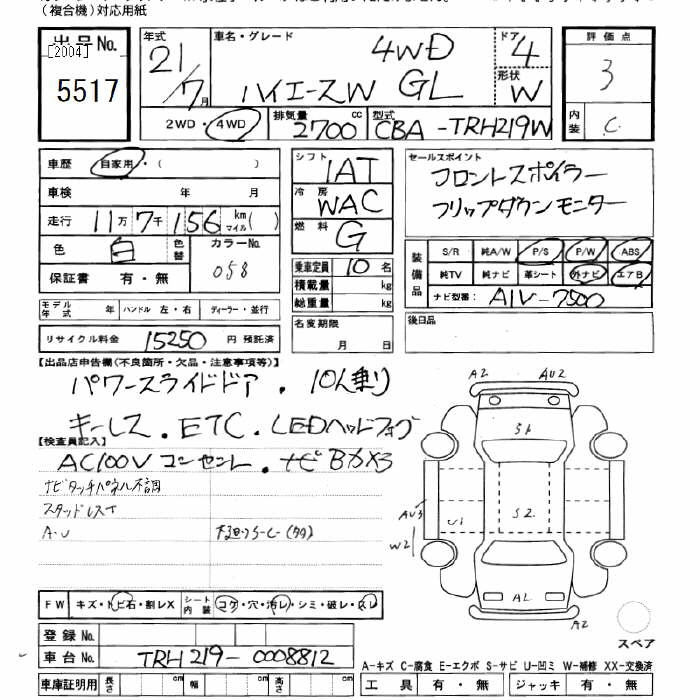 (複合機)対応用紙
出品No.
[2004]
5517
年式
21/7月
車名・グレード
4WD
ハイエースW GL
ドア
4
形状
W
2WD・4WD
排気量
2700cc
型式
CBA-TRH219W
評価点
3
内装
C
車歴 自家用・( )
車検 年 月
走行 11万7千156 km マイル( )
色 白 色替 カラーNo. 058
保証書 有・無
モデル年式 年 ハンドル 左・右 ディーラー・並行
リサイクル料金 15250 円 預託済
シフト 1AT
冷房 WAC
燃料 G
乗車定員 10名
積載量 kg
総重量 kg
名変期限
月 日
セールスポイント
フロントスポイラー
フリップダウンモニター
装備品
S/R 純A/W P/S P/W ABS
純TV 純ナビ 革シート 外ナビ エアB
ナビ型番: AIV-7900
後日品
【出品店申告欄(不良箇所・欠品・注意事項等)】
パワースライドドア . 10人乗り
キーレス . ETC . LEDヘッドフォグ
【検査員記入】
AC100Vコンセント . ナビBカメラ
ナビタッチパネル不調
スタッドレスT
A・U
FW キズ・トビ石・割レX シート内装 コゲ・穴・汚レ・シミ・破レ・スレ
登録No.
車台No. TRH219-0008812
車庫証明用 長さ cm 幅 cm 高さ cm
A2 AU2
S1
AU3
U1
S2
W2
A2
スペア
A-キズ C-腐食 E-エクボ S-サビ U-凹ミ W-補修 XX-交換済
工具 有・無 ジャッキ 有・無